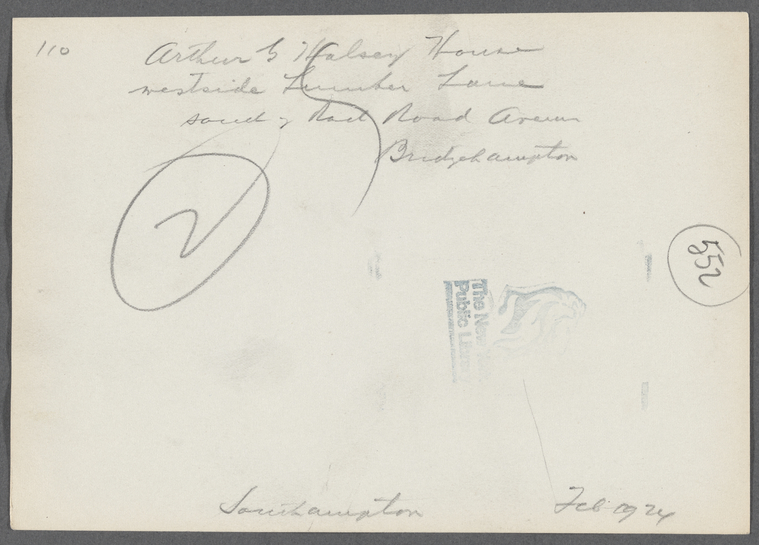 110
Arthur G Halsey House
westside Lumber Lane
south of Rail Road Avenue
Bridgehampton
2
552
The New
Public Library
Southampton
Feb 1924